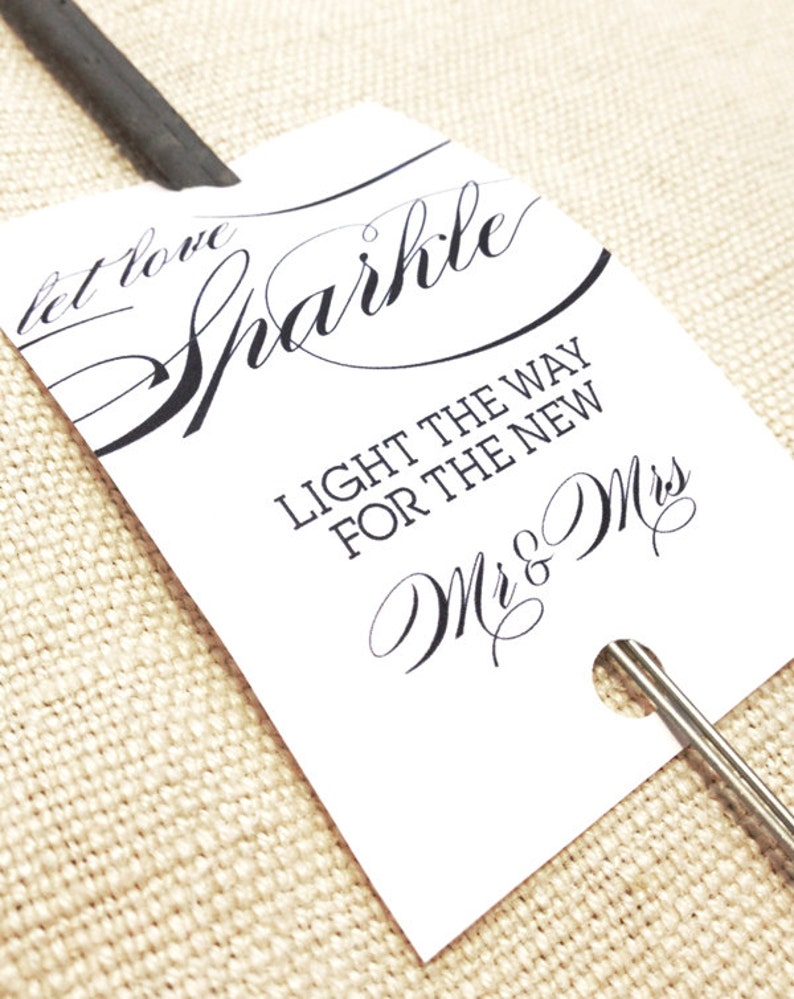 let love
Sparkle
LIGHT THE WAY
FOR THE NEW
Mr & Mrs